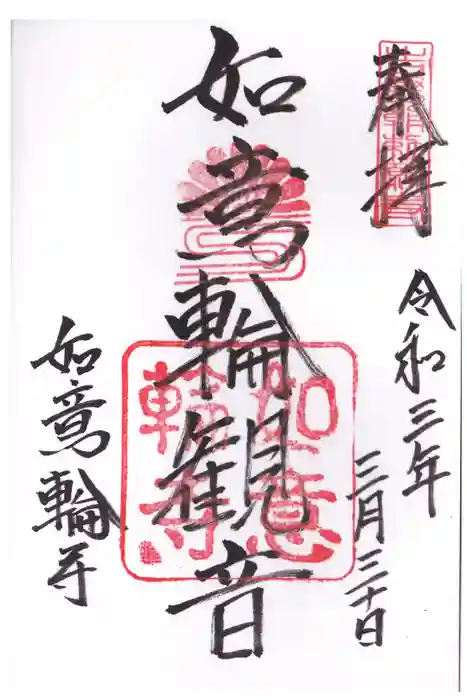 奉拝
令和三年
三月三十日
如意輪観音
如意輪寺
如意輪寺